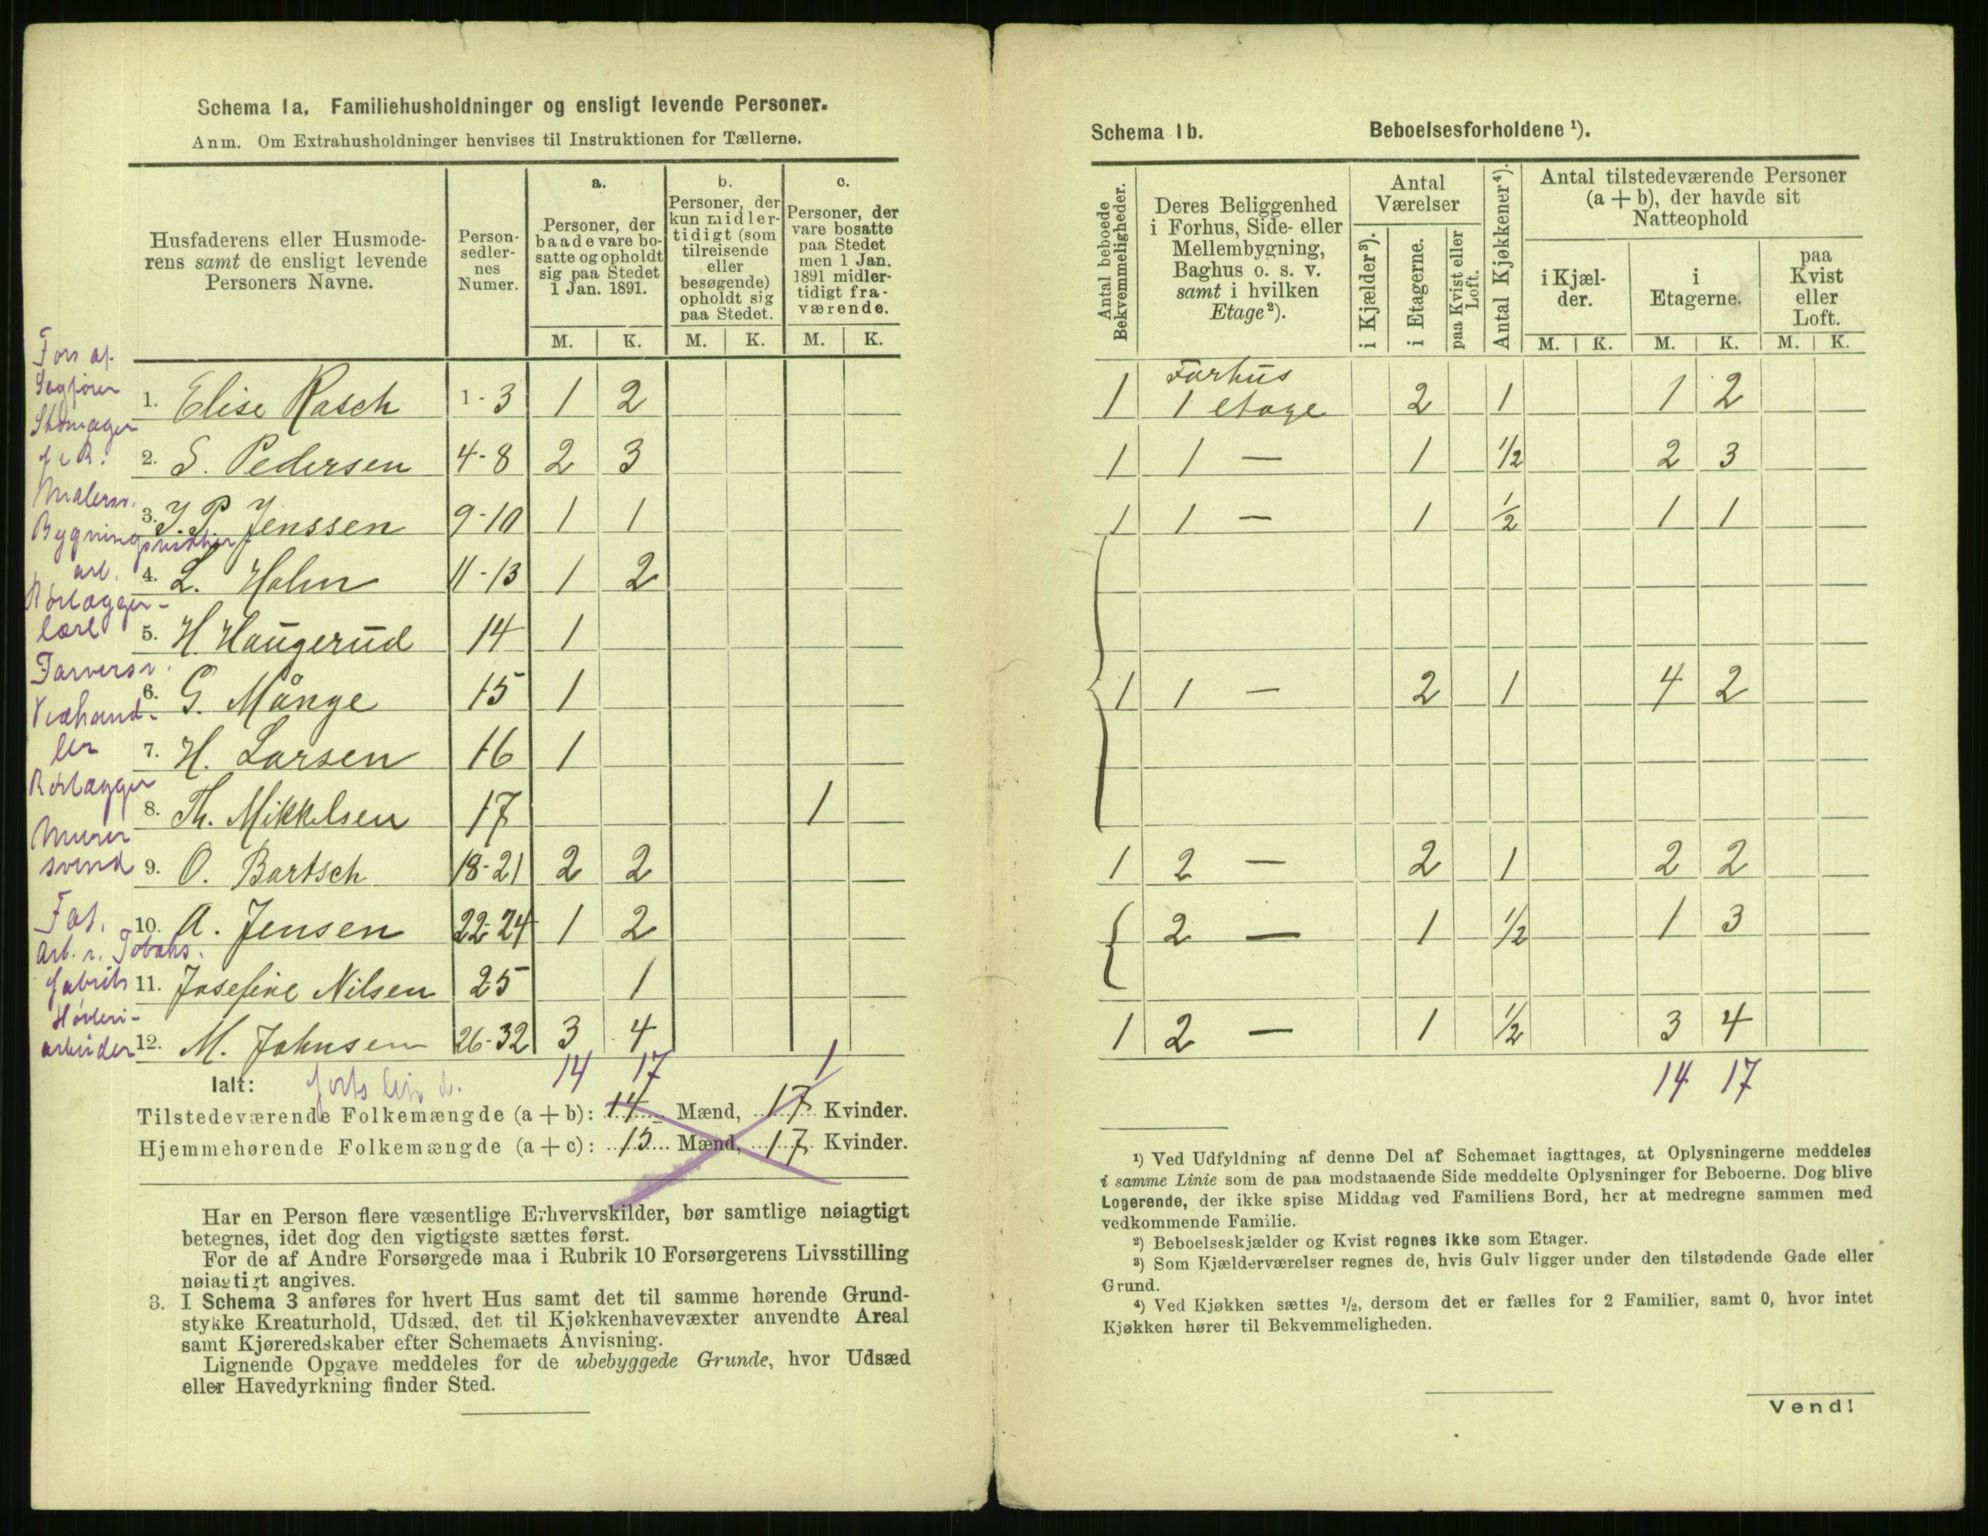 Schema 1a. Familiehusholdninger og ensligt levende Personer.
Anm. Om Extrahusholdninger henvises til Instruktionen for Tællerne.
Husfaderens eller Husmode-
rens samt de ensligt levende
Personers Navne.
Person-
sedler-
nes
Numer.
a.
Personer, der
baade vare bo-
satte og opholdt
sig paa Stedet
1 Jan. 1891.
b.
Personer, der
kun midler-
tidigt (som
tilreisende
eller
besøgende)
opholdt sig
paa Stedet.
c.
Personer, der
vare bosatte
paa Stedet
men 1 Jan.
1891 midler-
tidigt fra-
værende.
M. K. M. K. M. K.
Fors af
Sagfører
1. Elise Rasch 1-3 1 2
Skomager
2. S. Pedersen 4-8 2 3
Malersv.
3. J. P. Jenssen 9-10 1 1
Bygnings
arb.
4. L. Holm 11-13 1 2
Rørlægger-
lærl
5. H. Haugerud 14 1
Farversv.
6. G. Månge 15 1
Vedhand-
ler
7. H. Larsen 16 1
Rørlægger
8. Th. Mikkelsen 17 1
Murer
svend
9. O. Bartsch 18-21 2 2
10. A. Jensen 22-24 1 2
Arb. v. Tobaks.
fabrik
11. Josefine Nilsen 25 1
Høvleri-
arbeider
12. M. Johnsen 26-32 3 4
Ialt: 14 17 1
Tilstedeværende Folkemængde (a + b): 14 Mænd, 17 Kvinder.
Hjemmehørende Folkemængde (a + c): 15 Mænd, 17 Kvinder.
Har en Person flere væsentlige Erhvervskilder, bør samtlige nøiagtigt
betegnes, idet dog den vigtigste sættes først.
For de af Andre Forsørgede maa i Rubrik 10 Forsørgerens Livsstilling
nøiagtigt angives.
3. I Schema 3 anføres for hvert Hus samt det til samme hørende Grund-
stykke Kreaturhold, Udsæd, det til Kjøkkenhavevæxter anvendte Areal
samt Kjøreredskaber efter Schemaets Anvisning.
Lignende Opgave meddeles for de ubebyggede Grunde, hvor Udsæd
eller Havedyrkning finder Sted.
Schema 1b. Beboelsesforholdene ¹).
Antal beboede
Bekvemmeligheder.
Deres Beliggenhed
i Forhus, Side- eller
Mellembygning,
Baghus o. s. v.
samt i hvilken
Etage²).
Antal
Værelser
i Kjælder³).
i Etagerne.
paa Kvist eller
Loft.
Antal Kjøkkener⁴).
Antal tilstedeværende Personer
(a + b), der havde sit
Natteophold
i Kjæl-
der.
i
Etagerne.
paa
Kvist
eller
Loft.
M. K. M. K. M. K.
Forhus
1 1 etage 2 1 1 2
1 1 — 1 ½ 2 3
1 1 — 1 ½ 1 1
1 1 — 2 1 4 2
1 2 — 2 1 2 2
2 — 1 ½ 1 3
1 2 — 1 ½ 3 4
14 17
¹) Ved Udfyldning af denne Del af Schemaet iagttages, at Oplysningerne meddeles
i samme Linie som de paa modstaaende Side meddelte Oplysninger for Beboerne. Dog blive
Logerende, der ikke spise Middag ved Familiens Bord, her at medregne sammen med
vedkommende Familie.
²) Beboelseskjælder og Kvist regnes ikke som Etager.
³) Som Kjælderværelser regnes de, hvis Gulv ligger under den tilstødende Gade eller
Grund.
⁴) Ved Kjøkken sættes ½, dersom det er fælles for 2 Familier, samt 0, hvor intet
Kjøkken hører til Bekvemmeligheden.
Vend!